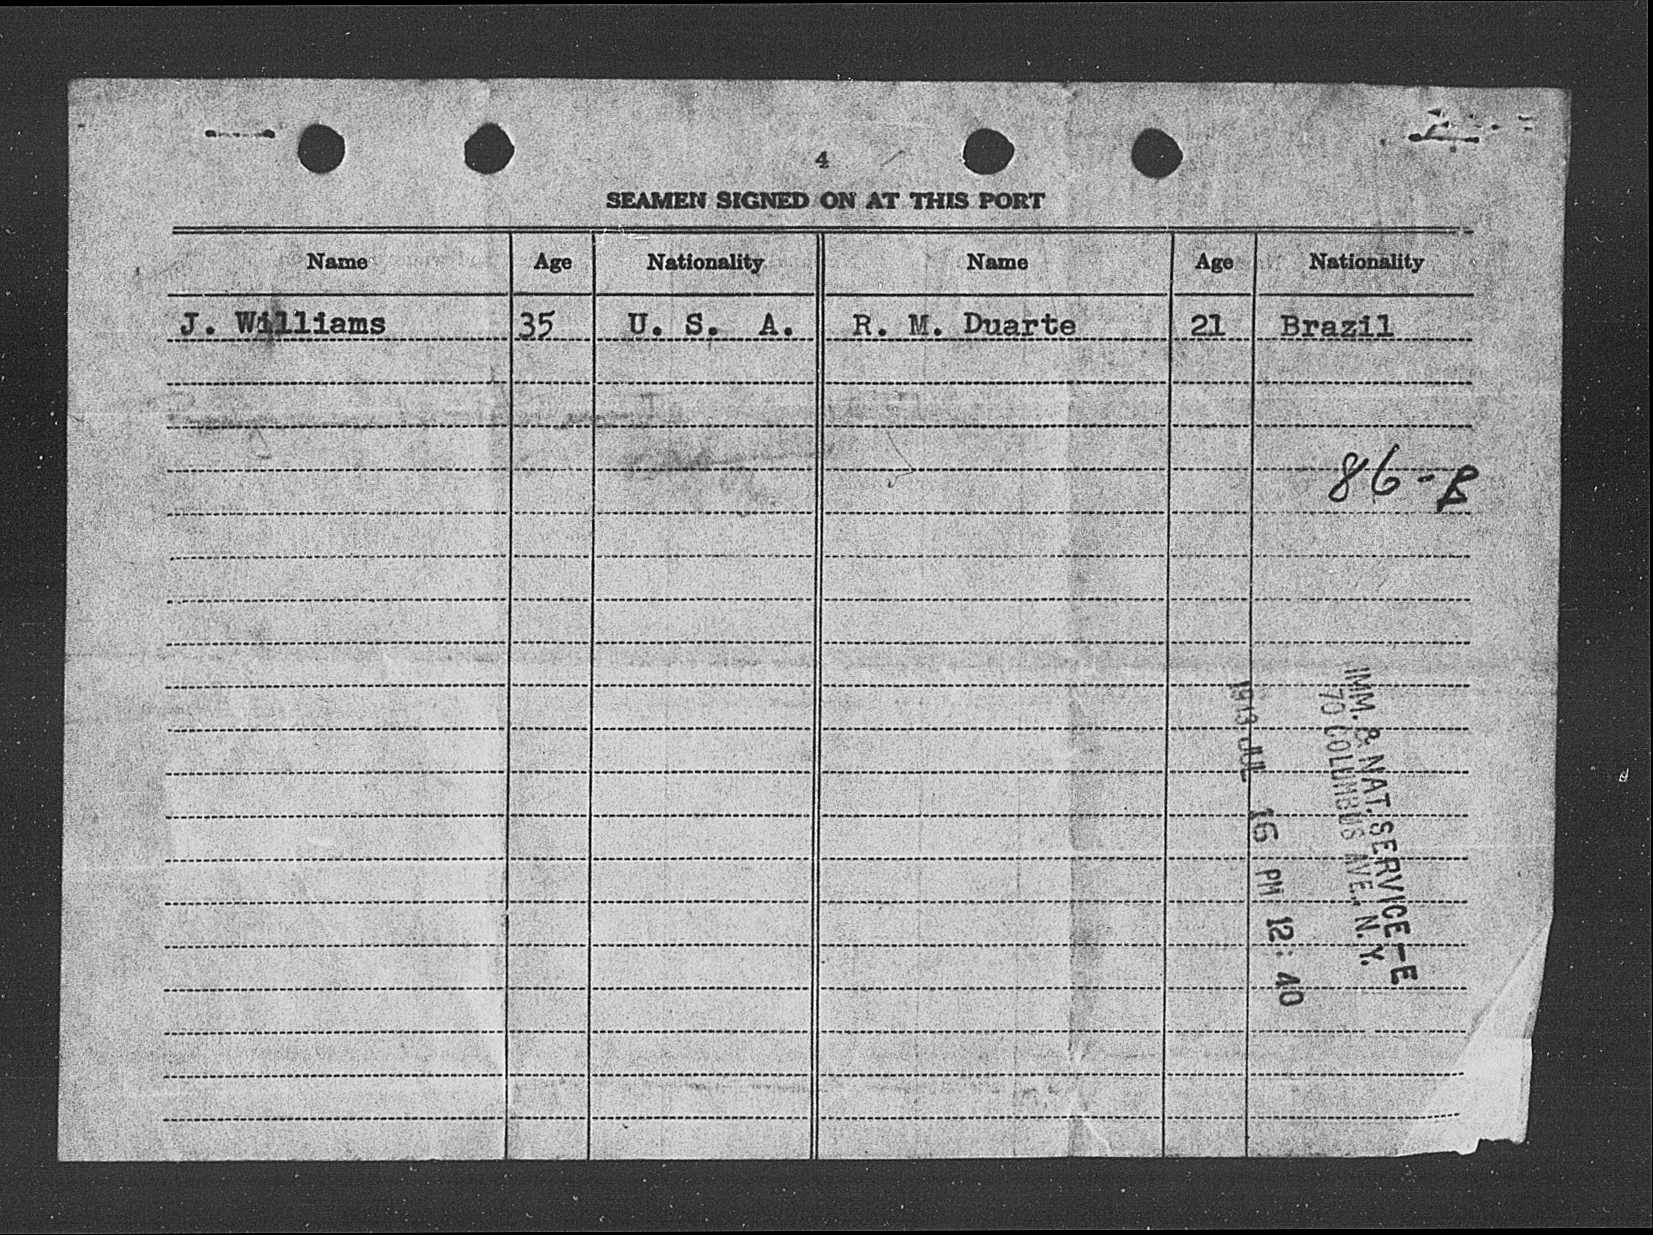 4
SEAMEN SIGNED ON AT THIS PORT
Name Age Nationality Name Age Nationality
J. Williams 35 U. S. A. R. M. Duarte 21 Brazil
86-B
IMM. & NAT. SERVICE-E
70 COLUMBUS AVE., N.Y.
1943 JUL 16 PM 12:40